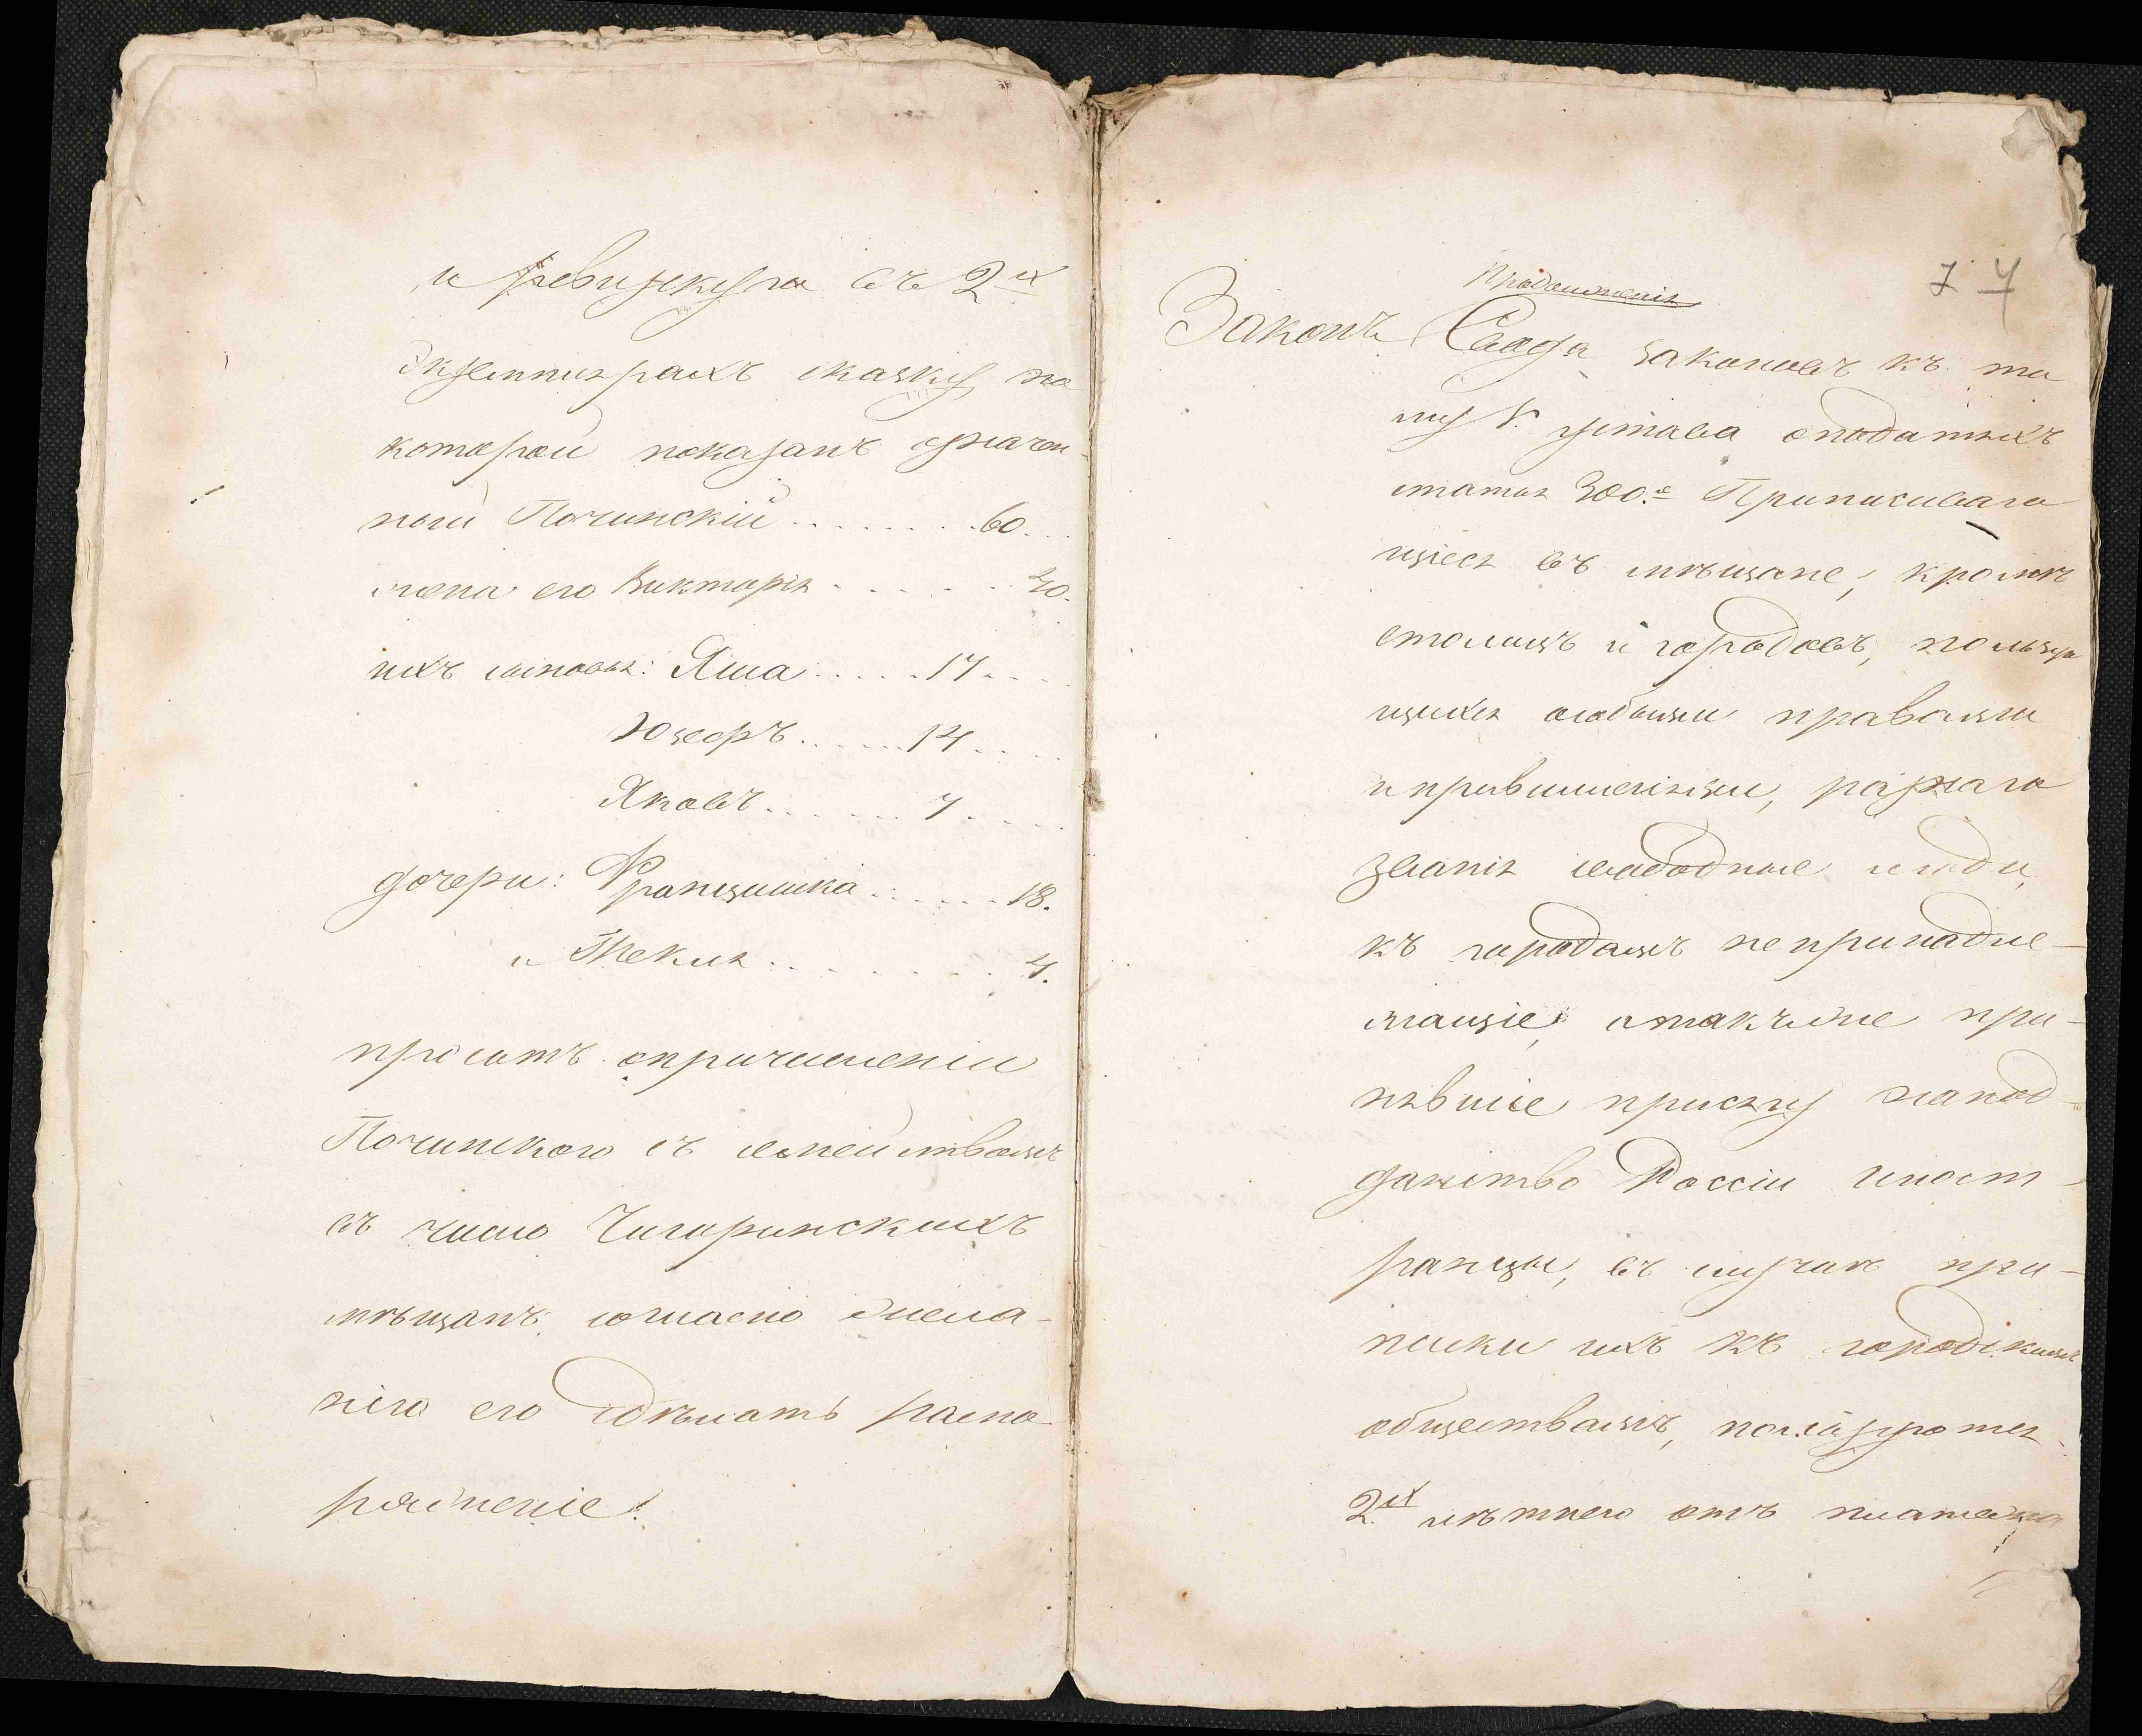 и ревизскую въ 2хъ
экземплярахъ сказку по
которой показанъ означен-
ный Починскій ........ 60...
жена его Викторія ...... 30.
ихъ сыновья: Яша ..... 17....
Юзефъ ...... 14....
Яковъ ...... 7....
дочери: Францишка ...... 18.
и Текля ........ 4.
проситъ опричисленіи
Почискаго съ семействомъ
въ число Чигиринскихъ
мѣщанъ, согласно жела-
нію его сдѣлать распо-
ряженіе.
7 4
Продолженія
Законъ Свода законовъ къ то
му V. устава оподатяхъ
статья 300.я Приписываю
щіеся въ мѣщане, кромѣ
столицъ и городовъ, пользую
щихся особыми правами
и привиллегіями, разнаго
званія свободные люди,
къ городамъ непринадле-
жащіе, атакъже при-
нявшіе присягу наподд-
данство Россіи иност-
ранцы, въ случаѣ при-
писки ихъ къ городскимъ
обществамъ, пользуются
2хъ лѣтнею отъ платежа